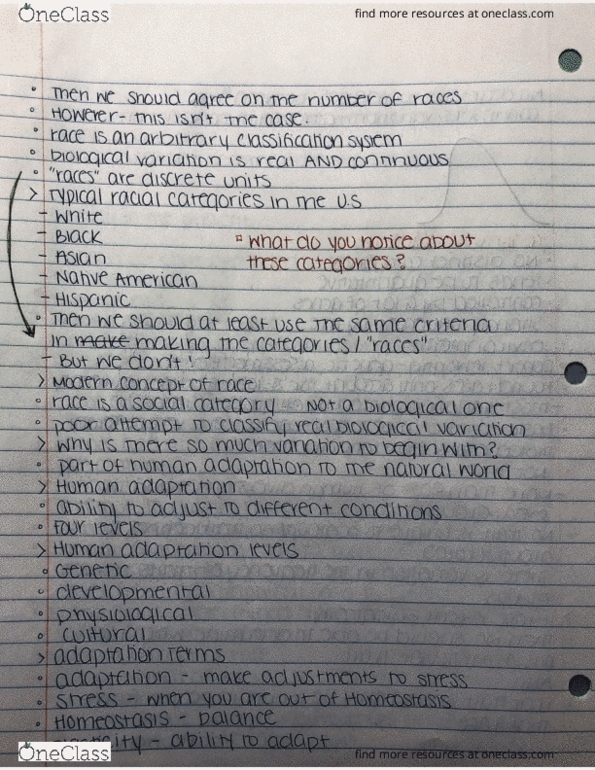 OneClass
find more resources at oneclass.com
Then we should agree on the number of races
However - this isn't the case.
race is an arbitrary classification system
biological variation is real AND continuous
"races" are discrete units
> Typical racial categories in the U.S
- White
- Black
- Asian
- Native American
- Hispanic
what do you notice about
these categories?
Then we should at least use the same criteria
in make making the categories / "races"
- But we don't!
> Modern concept of race
race is a social category NOT a biological one
poor attempt to classify real biological variation
> why is there so much variation to begin with?
part of human adaptation to the natural world
> Human adaptation
ability to adjust to different conditions
four levels
> Human adaptation levels
Genetic
developmental
physiological
cultural
> adaptation terms
adaptation - make adjustments to stress
stress - when you are out of Homeostasis
Homeostasis - balance
- ability to adapt
OneClass
find more resources at oneclass.com